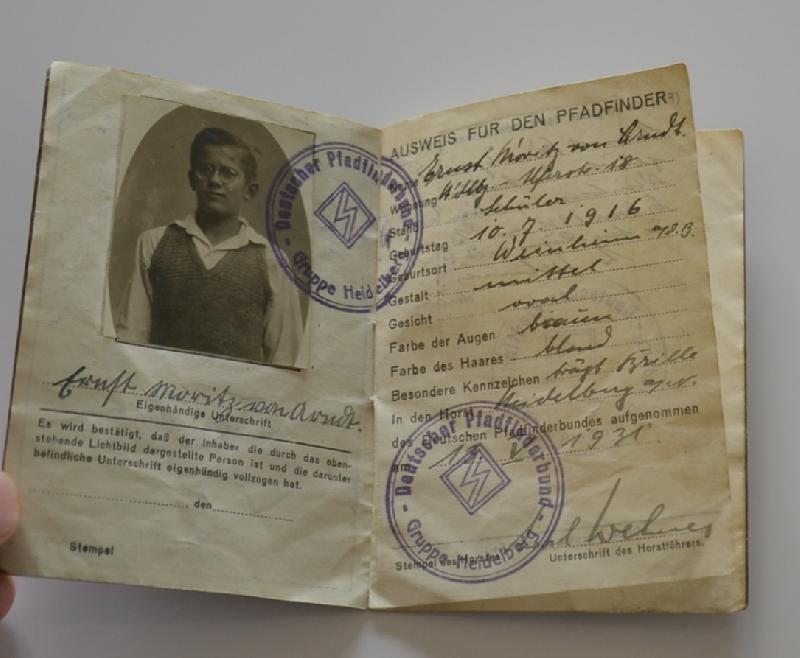 Deutscher Pfadfinderbund
Gruppe Heidelberg
Ernst Moritz von Arndt.
Eigenhändige Unterschrift
Es wird bestätigt, daß der Inhaber die durch das oben-
stehende Lichtbild dargestellte Person ist und die darunter
befindliche Unterschrift eigenhändig vollzogen hat.
, den
Stempel
AUSWEIS FÜR DEN PFADFINDER
Name Ernst Moritz von Arndt.
Wohnung 18
Stand Schüler
Geburtstag 10. 7. 1916
Geburtsort Weinheim
Gestalt mittel
Gesicht oval
Farbe der Augen braun
Farbe des Haares blond
Besondere Kennzeichen trägt Brille
In den Horst Heidelberg
des Deutschen Pfadfinderbundes aufgenommen
am 1931.
Deutscher Pfadfinderbund
Gruppe Heidelberg
Stempel des Horstes Unterschrift des Horstführers.